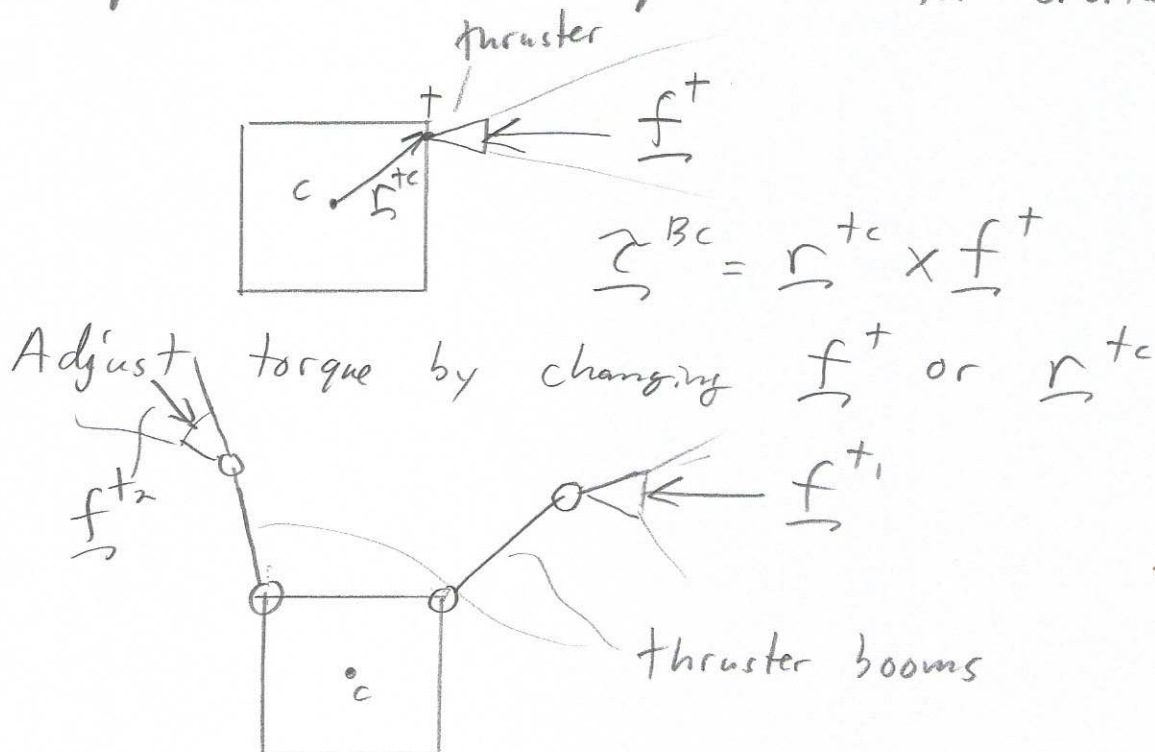 thruster
t
f^t
c
r^tc
τ^Bc = r^tc × f^t
Adjust torque by changing f^t or r^tc
f^t2
f^t1
thruster booms
c